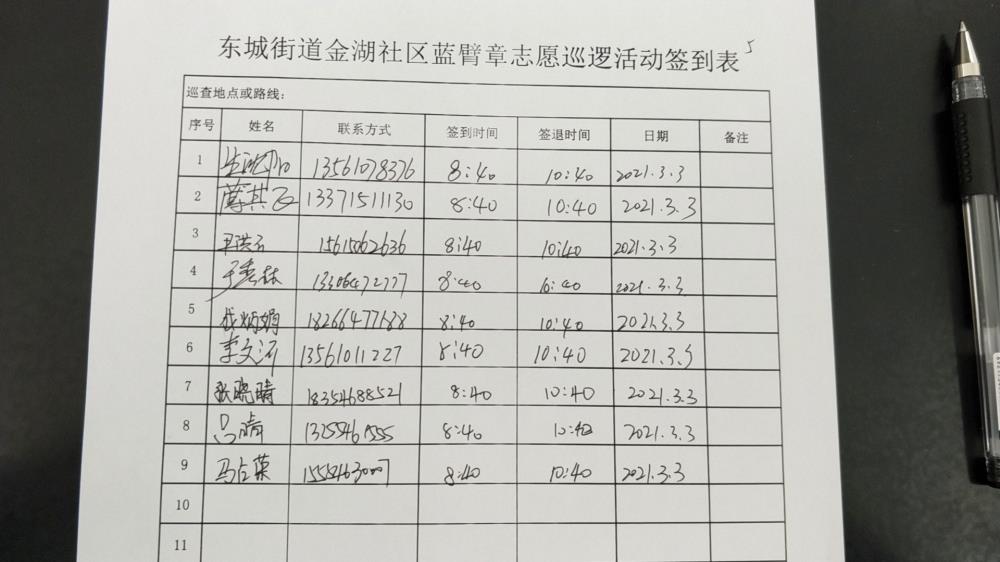 东城街道金湖社区蓝臂章志愿巡逻活动签到表 5
巡查地点或路线:
序号 姓名 联系方式 签到时间 签退时间 日期 备注
1 13561078376 8:40 10:40 2021.3.3
2 13371511130 8:40 10:40 2021.3.3
3 15615062636 8:40 10:40 2021.3.3
4 于秀林 13306472777 8:40 10:40 2021.3.3
5 8:40 10:40 2021.3.3
6 李文河 13561011227 8:40 10:40 2021.3.3
7 张晓晴 18354688521 8:40 10:40 2021.3.3
8 吕晴 8:40 10:40 2021.3.3
9 马占荣 8:40 10:40 2021.3.3
10
11